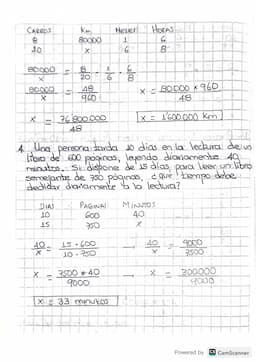 CARROS Km MESES HORAS
8 80000 1 6
20 x 6 8
80000/x = 8/20 · 1/6 · 6/8
80000/x = 48/960 x = 80000 * 960/48
x = 76'800.000/48 x = 1'600.000 Km
4. Una persona tarda 10 dias en la lectura de un
libro de 600 paginas, leyendo diariamente 40
minutos. Si dispone de 15 dias para leer un libro
semejante de 750 páginas, ¿que tiempo debe
dedidar diariamente a la lectura?
DIAS PAGINAS MINUTOS
10 600 40
15 750 x
40/x = 15 · 600/10 · 750 → 40/x = 9000/7500
x = 7500 * 40/9000 → x = 300000/9000
x = 33 minutos
Powered by CS CamScanner